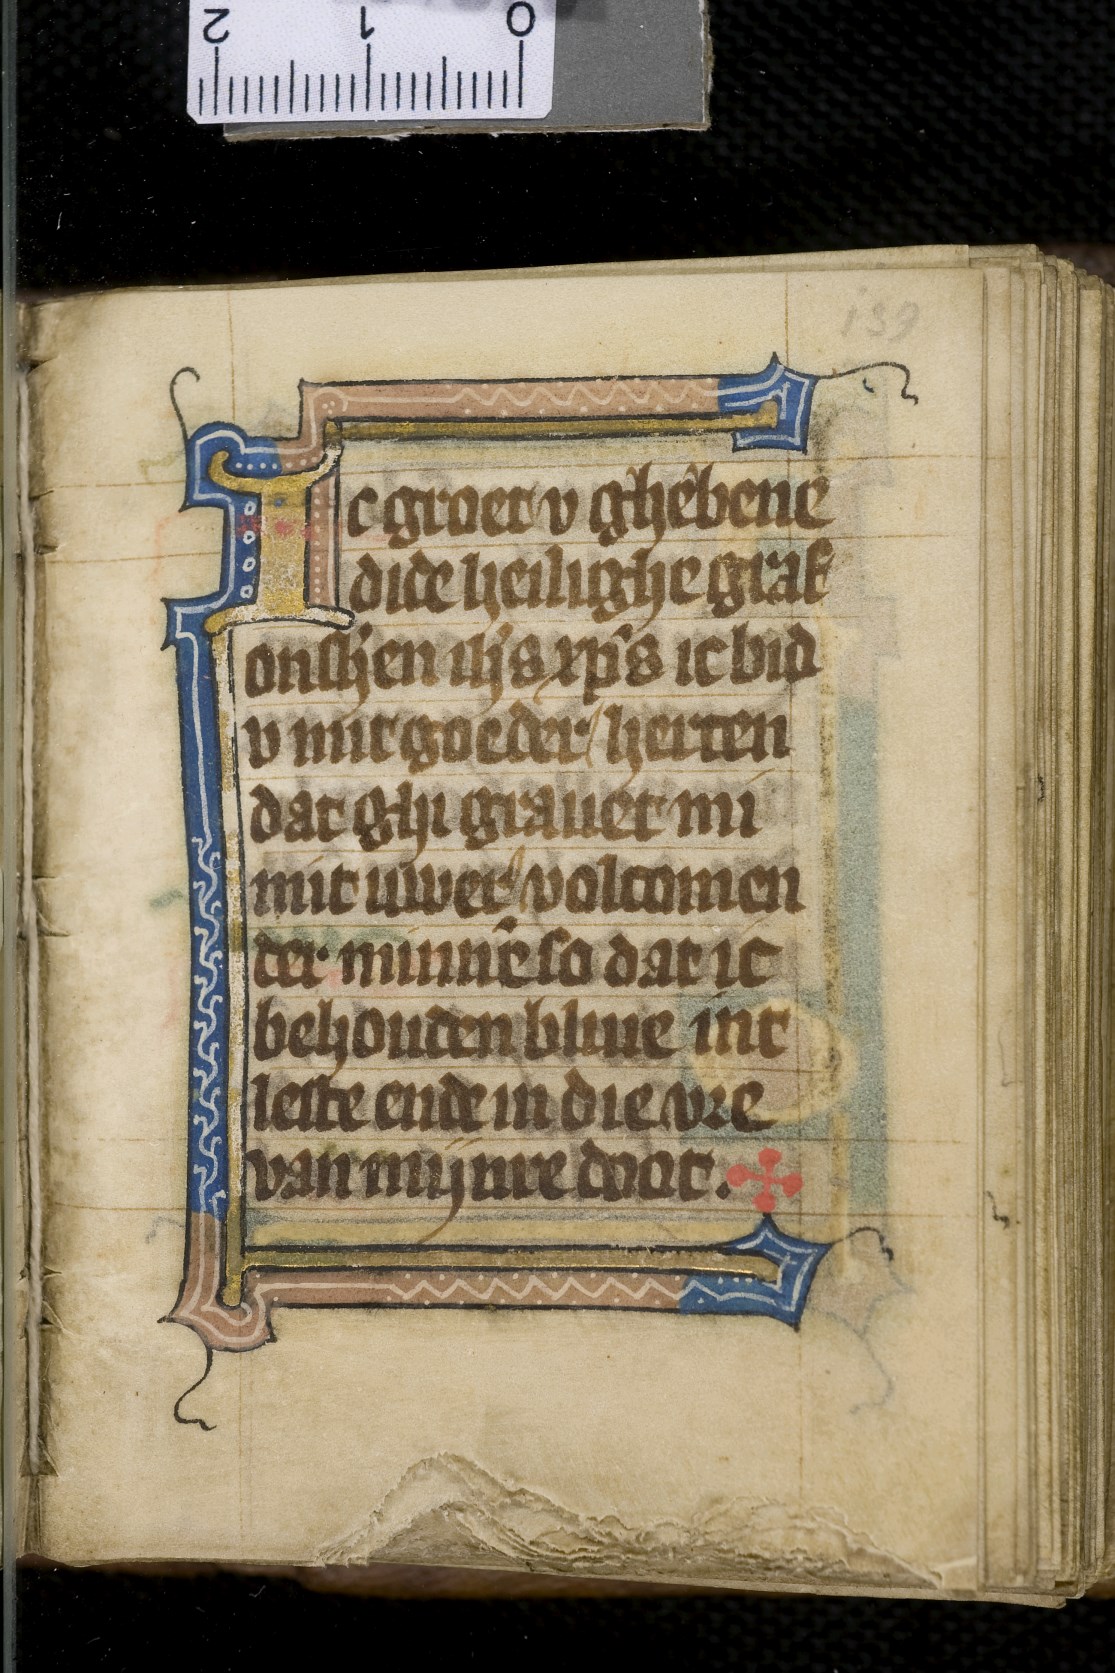 2 1 0
139
Ic groet v ghebene
dide heilighe graf
onshen ihs xps ic bid
v mit goeder herten
dat ghi grauet mi
mit uwer volcomen
der minne so dat ic
behouden bliue int
leste ende in die vre
van mijnre doot.